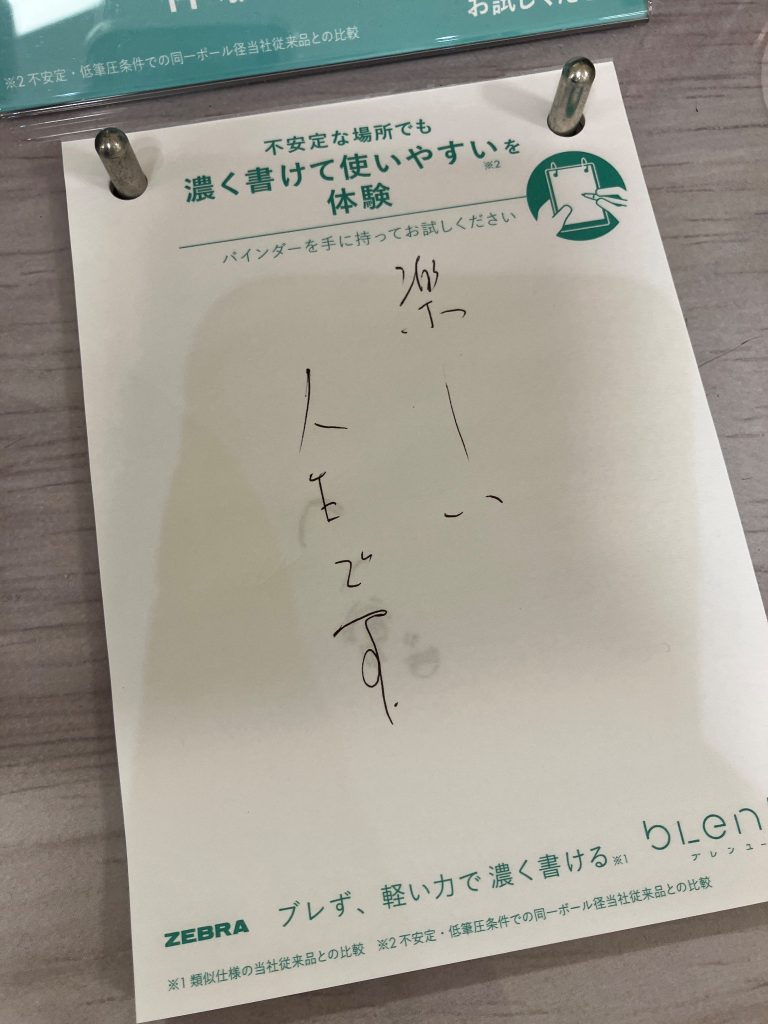 お試しくださ
※2 不安定・低筆圧条件での同一ボール径当社従来品との比較
不安定な場所でも
濃く書けて使いやすい※2を
体験
バインダーを手に持ってお試しください
楽しい
人生です。
bLen
ブレンユー
ブレず、軽い力で濃く書ける※1
ZEBRA
※1 類似仕様の当社従来品との比較 ※2 不安定・低筆圧条件での同一ボール径当社従来品との比較